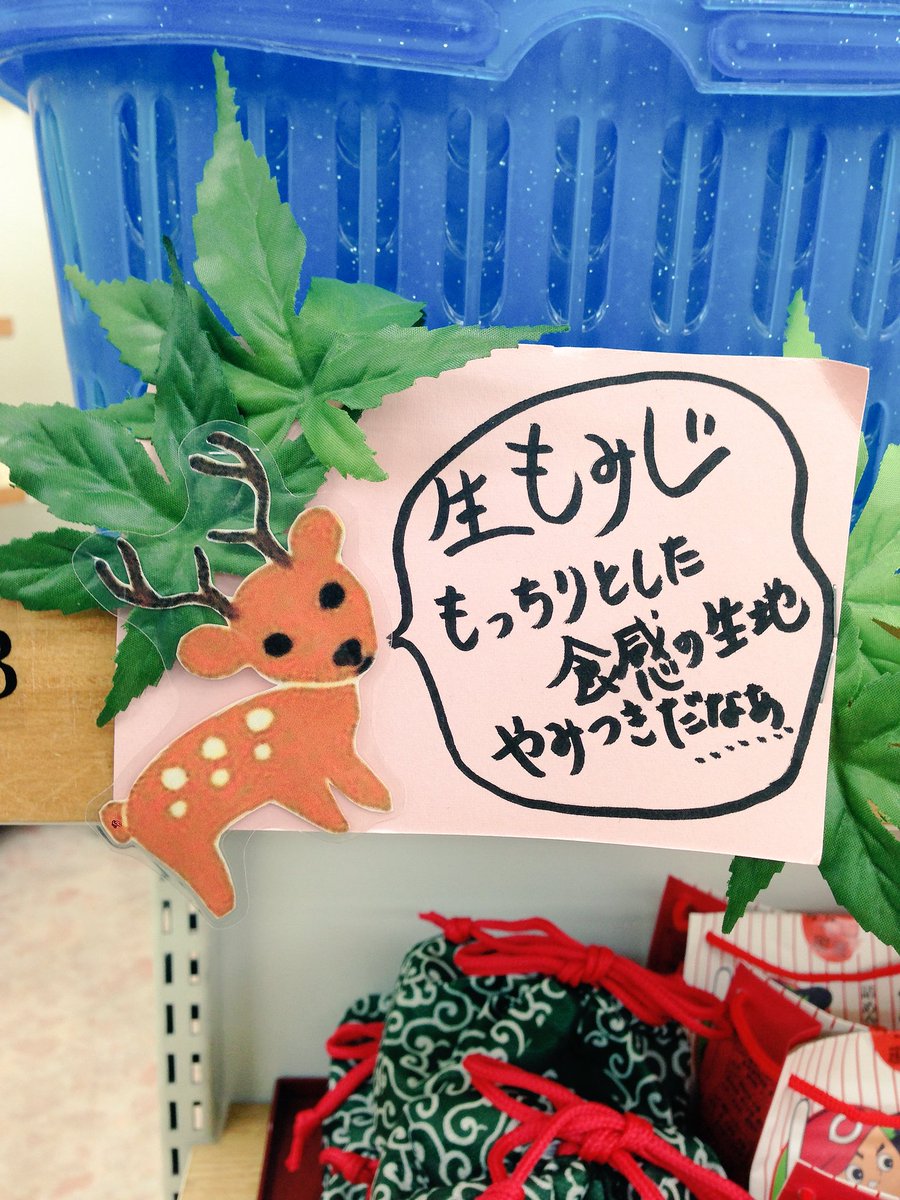 生もみじ
もっちりとした
食感の生地
やみつきだなあ........
3